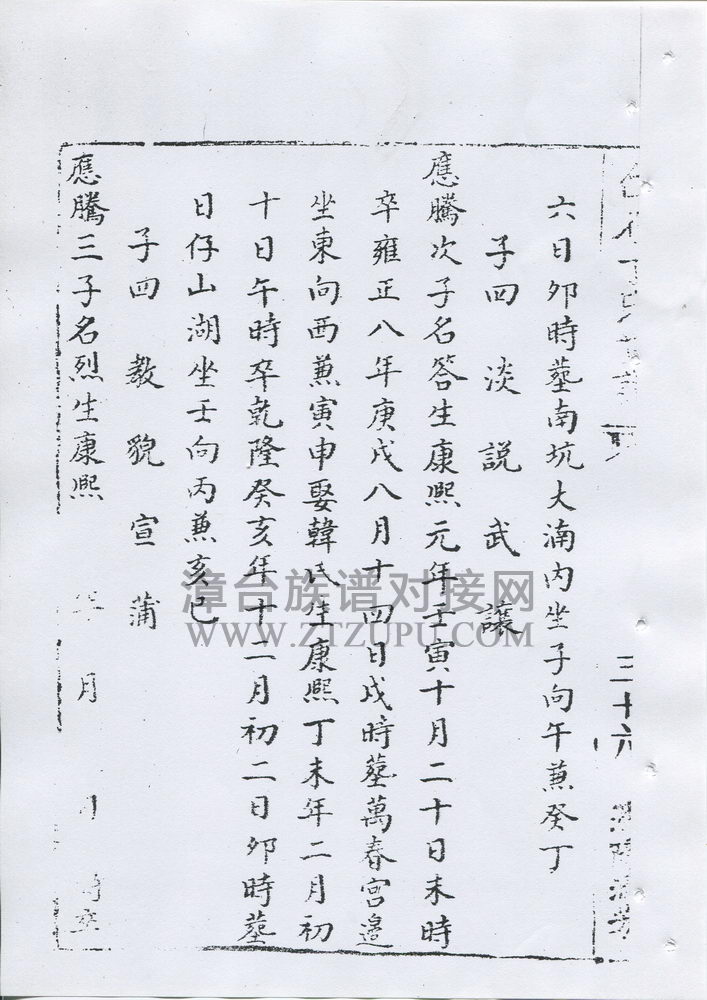 三十六
六日卯時墓南坑大湳内坐子向午兼癸丁
子四 淡 説 武 讓
應騰次子名答生康熙元年壬寅十月二十日未時
卒雍正八年庚戌八月十四日戌時墓萬春宮邊
坐東向西兼寅申娶韓氏生康熙丁未年二月初
十日午時卒乾隆癸亥年十二月初二日卯時墓
日仔山湖坐壬向丙兼亥巳
子四 教 貌 宣 蒲
應騰三子名烈生康熙 年 月 日 時卒
漳台族谱对接网
WWW.ZTZUPU.COM